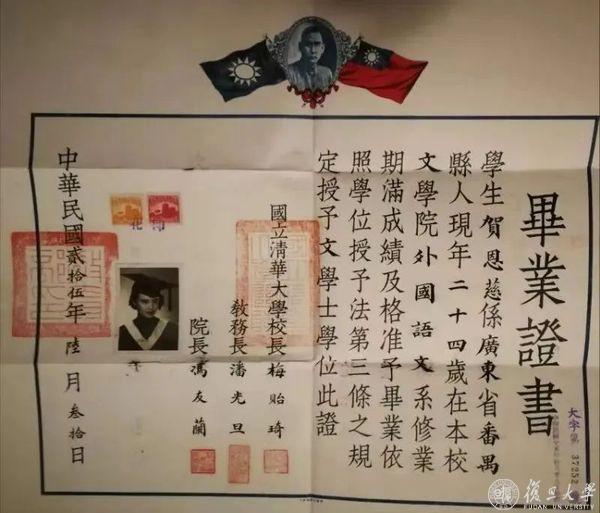 畢業證書
學生賀恩慈係廣東省番禺
縣人現年二十四歲在本校
文學院外國語文系修業
期滿成績及格准予畢業依
照學位授予法第三條之規
定授予文學士學位此證
國立清華大學校長梅貽琦
教務長潘光旦
院長馮友蘭
中華民國貳拾伍年陸月叁拾日
大字第
37252
復旦大學
FUDAN UNIVERSITY